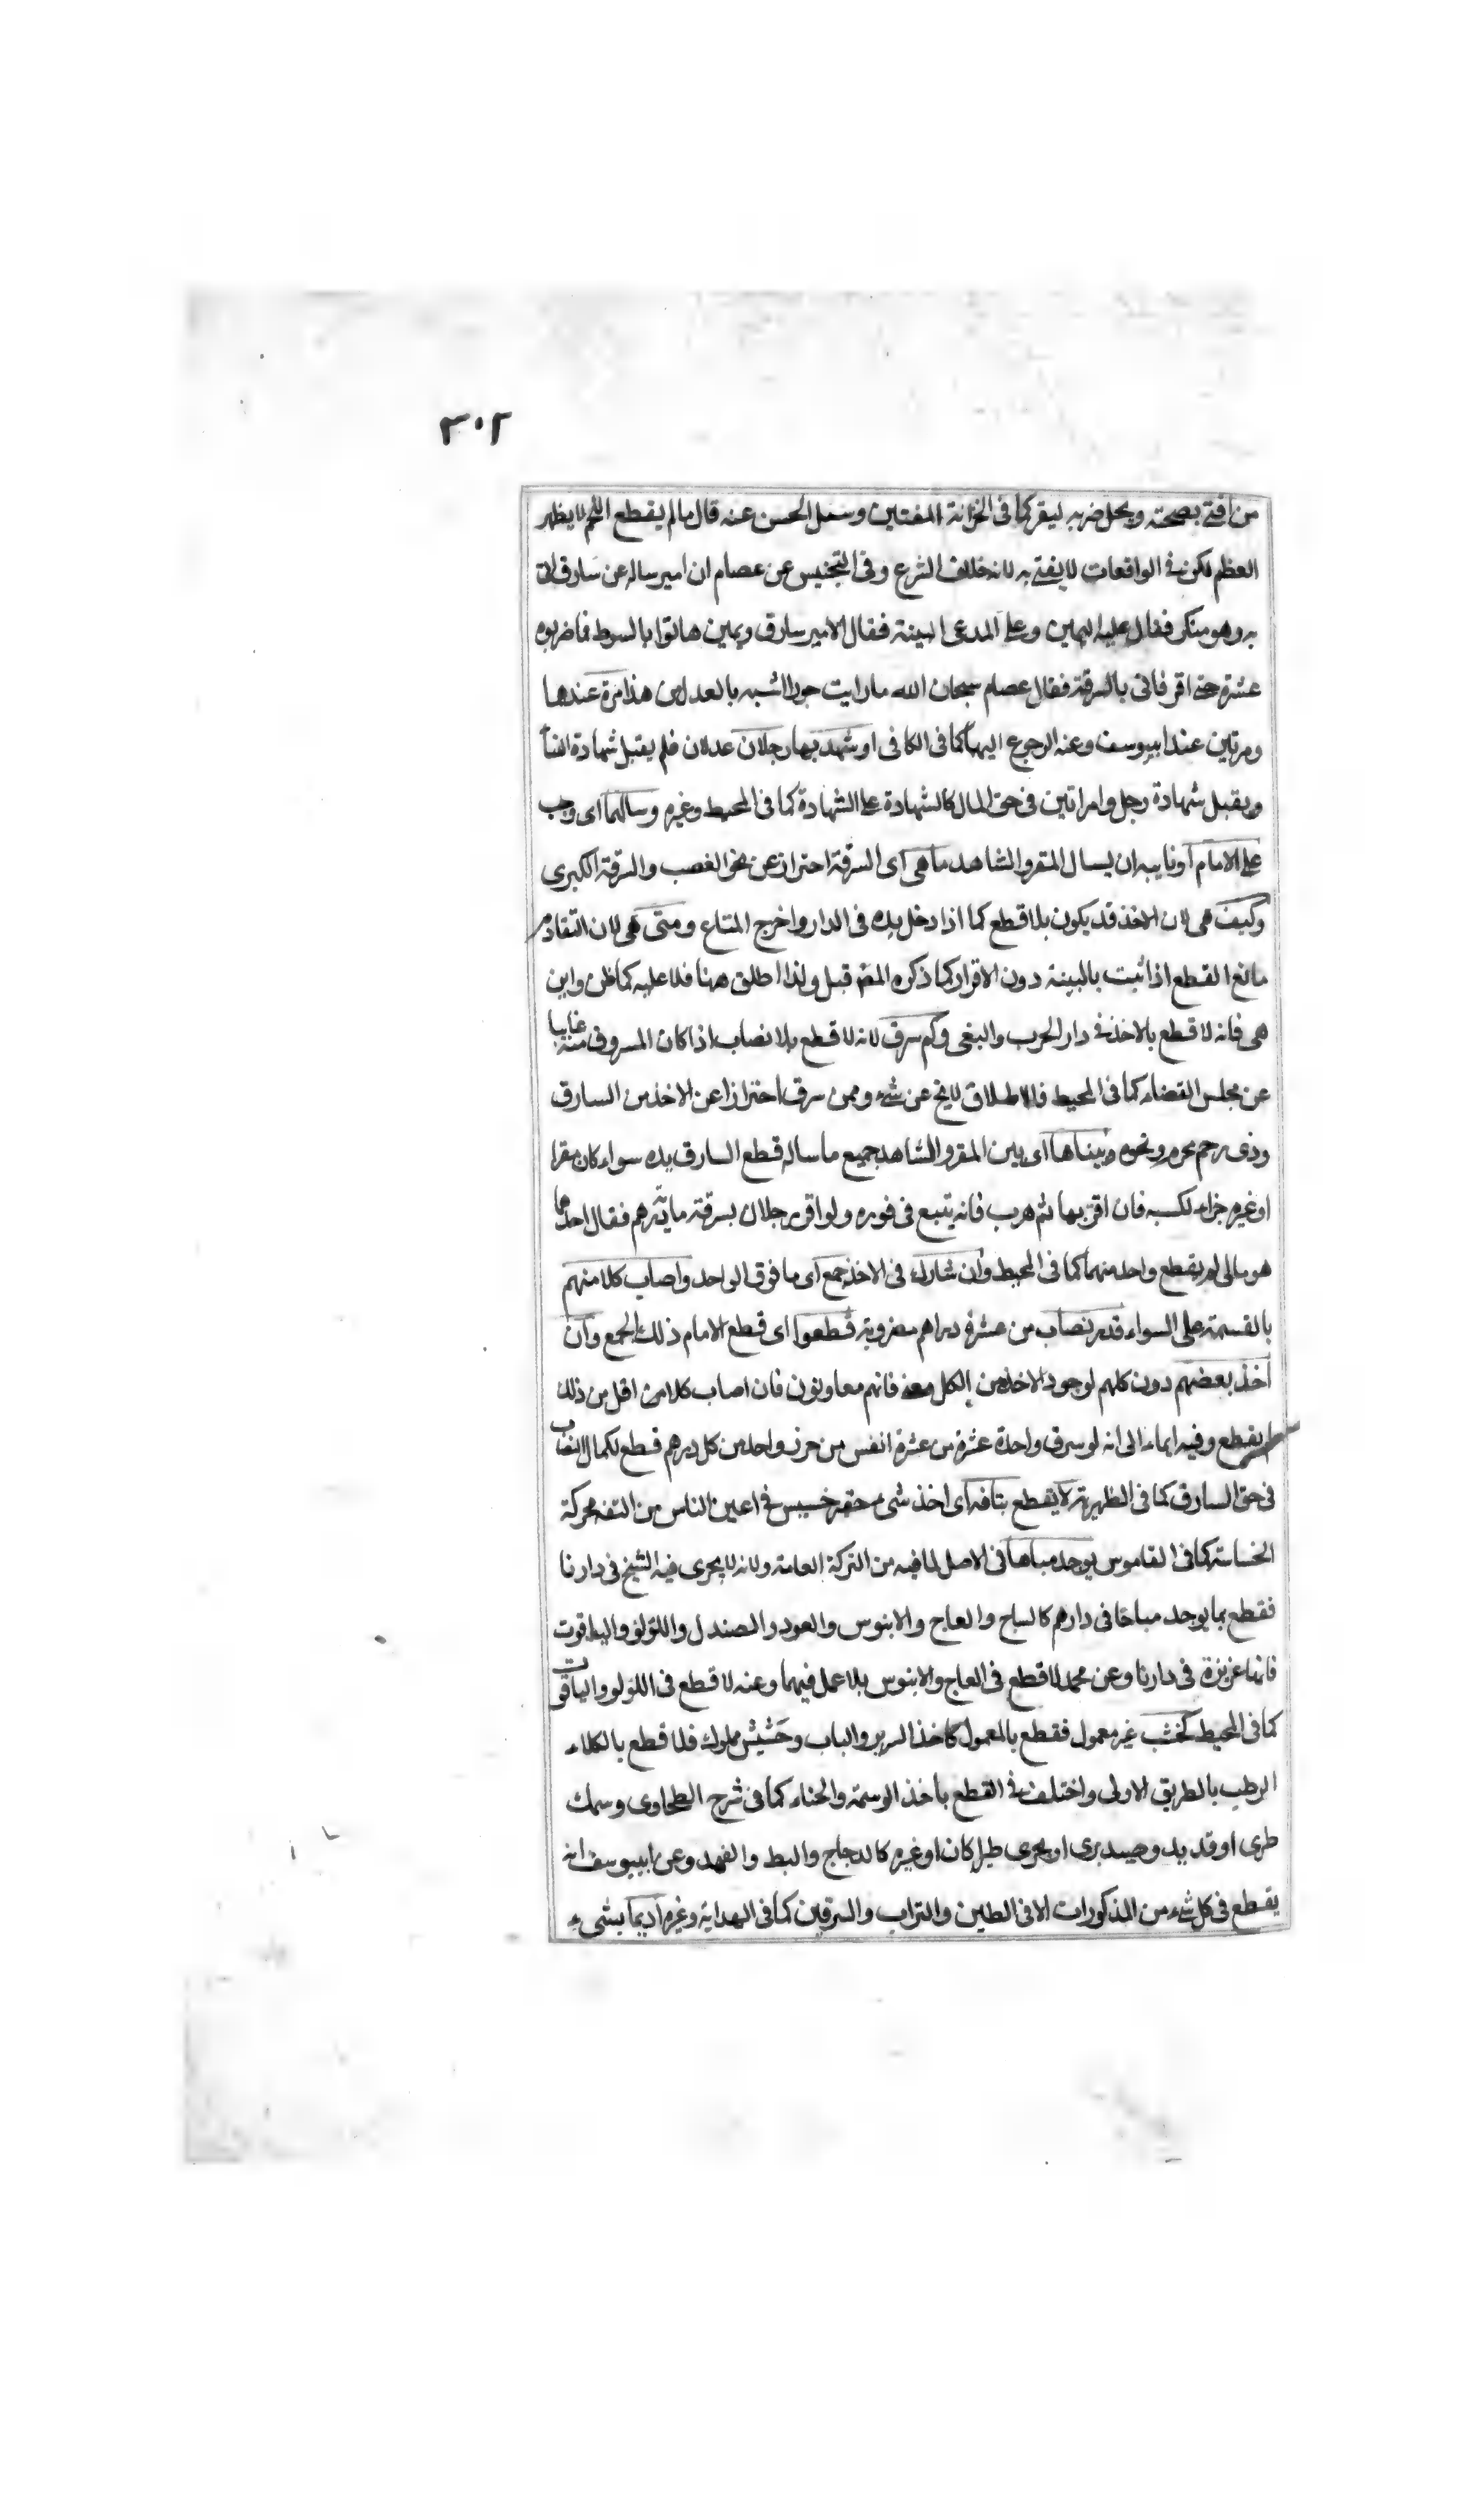 ٣٠٢
من افتى بصحته ويحل ضربه ليقر كما فى الخزانة المفتين وسئل الحسن عنه قال مالم يقطع اللحم لا يظهر
العظم لكن فى الواقعات لا يفتى به لانه خلاف الشرع وفى التجنيس عن عصام ان امير ساله عن سارق اتى
به وهو منكر فقال عليه اليمين وعلى المدعى البينة فقال الامير سارق ويمين هاتوا بالسوط فما ضربوه
عشرة حتى اقر فاتى بالسرقة فقال عصام سبحان الله ما رايت جورا اشبه بالعدل من هذا مرة عندهما
ومرتين عند ابيوسف وعنه الرجوع اليهما كما فى الكافى او شهد بها رجلان عدلان فلم يقبل شهادة النسا
ويقبل شهادة رجل وامراتين فى حق المال كالشهادة على الشهادة كما فى المحيط وغيره وسالهما اى وجب
على الامام او نايبه ان يسال المقر والشاهد ما هى اى السرقة احتراز عن نحو الغصب والسرقة الكبرى
وكيف هى لان الاخذ قد يكون بلا قطع كما اذا دخل يده فى الدار واخرج المتاع ومتى هى لان التقادم
مانع القطع اذا ثبت بالبينة دون الاقرار كما ذكره المص قبل ولذا اطلق ههنا فلا عليه كما ظن واين
هى فانه لا قطع بالاخذ فى دار الحرب والبغى وكم سرق لانه لا قطع بلا نصاب اذا كان المسروق منه غايبا
عن مجلس القضاء كما فى المحيط فالاطلاق لا يخ عن شىء وممن سرق احترازا عن الاخذ من السارق
وذى رحم محرم ونحوه وبيناها اى بين المقر والشاهد جميع ما ساله قطع السارق يده سواء كان مقرا
او غيره جزاء لكسبه فان اقر بها ثم هرب فانه يتبع فى فوره ولو اقر رجلان بسرقة ماية درهم فقال احدهما
هو مالى لم يقطع واحد منهما كما فى المحيط وان شارك فى الاخذ جمع اى ما فوق الواحد واصاب كلا منهم
بالقسمة على السواء قدر نصاب من عشرة دراهم مضروبة قطعوا اى قطع الامام ذلك الجمع وان
اخذ بعضهم دون كلهم لوجود الاخذ من الكل معنى فانهم معاونون فان اصاب كلا من اقل من ذلك
لم يقطع وفيه ايماء الى انه لو سرق واحدة عشرة من عشرة انفس من حرز واحد من كل درهم قطع لكمال النصاب
فى حق السارق كما فى الظهيرية لا يقطع بتافه اى اخذ شىء حقير خسيس فى اعين الناس من التفه محركة
الخساسة كما فى القاموس يوجد مباحا فى الاصل لما فيه من التركة العامة ولانه لا يجرى فيه الشيخ فى دارنا
فقطع بما يوجد مباحا فى دارهم كالساج والعاج والابنوس والعود والصندل واللؤلؤ والياقوت
فانها عزيزة فى دارنا وعن محمد لا قطع فى العاج والابنوس بلا عمل فيهما وعنه لا قطع فى اللؤلو والياقوت
كما فى المحيط كخشب غير معمول فقطع بالمعمول كاخذ السرير والباب وحشيش مملوك فلا قطع بالكلاء
الرطب بالطريق الاولى واختلف فى القطع باخذ الوسمة والحناء كما فى شرح الطحاوى وسمك
طرى او قديد وصيد برى او بحرى طير كان او غيره كالدجاج والبط والفهد وعن ابيوسف انه
يقطع فى كل شىء من المذكورات الا فى الطين والتراب والسرقين كما فى الهداية وغيره اديما بشىء